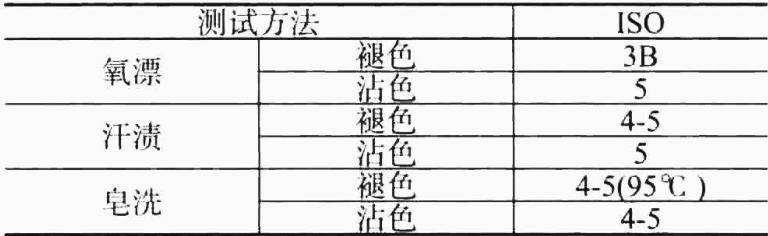 测试方法 ISO
氧漂 褪色 3B
沾色 5
汗渍 褪色 4-5
沾色 5
皂洗 褪色 4-5(95℃)
沾色 4-5